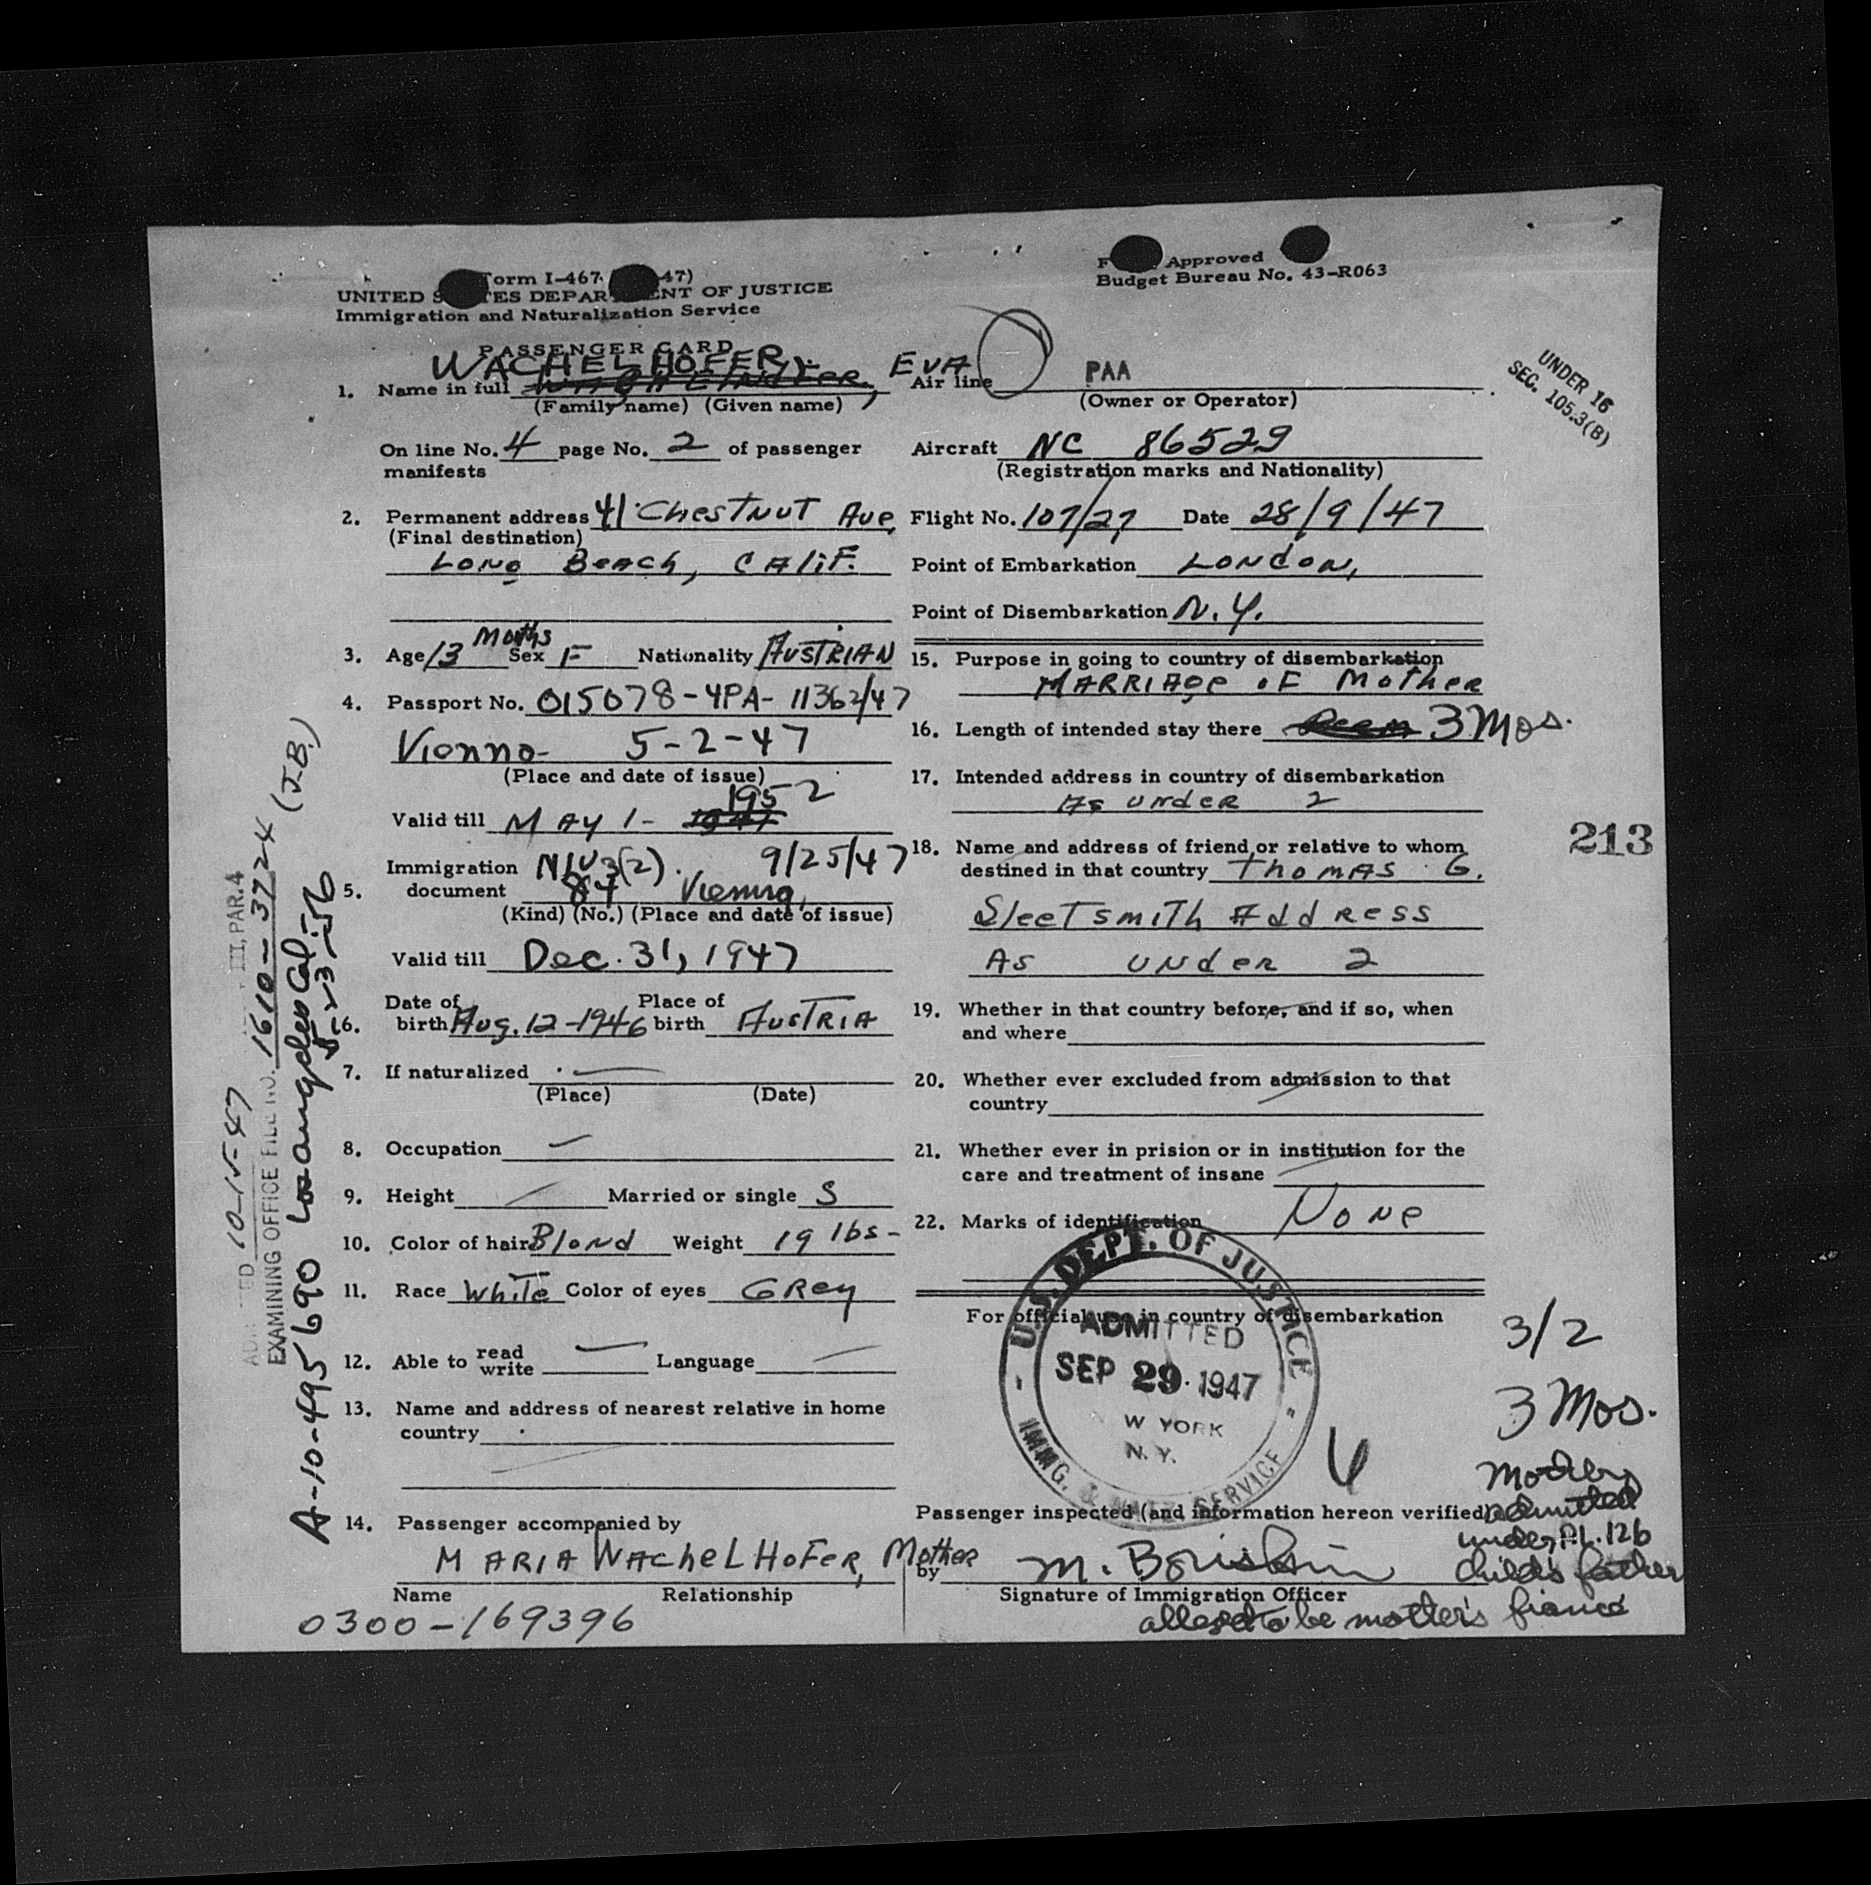 Form I-467 47)
UNITED STATES DEPARTMENT OF JUSTICE
Immigration and Naturalization Service
PASSENGER CARD
Approved
Budget Bureau No. 43-R063
UNDER 16
SEC. 105.3(B)
WACHELHOFER, EVA
1. Name in full
(Family name) (Given name)
Air line PAA
(Owner or Operator)
On line No. 4 page No. 2 of passenger
manifests
Aircraft NC 86529
(Registration marks and Nationality)
2. Permanent address 41 Chestnut Ave,
(Final destination)
Long Beach, Calif.
Flight No. 107/27 Date 28/9/47
Point of Embarkation London,
Point of Disembarkation N.Y.
3. Age 13 Months Sex F Nationality Austrian
4. Passport No. 015078-4PA-11362/47
Vienna 5-2-47
(Place and date of issue)
Valid till May 1- 1952
5. Immigration document NIV 3(2). 9/25/47
84 Vienna,
(Kind) (No.) (Place and date of issue)
Valid till Dec. 31, 1947
6. Date of birth Aug. 12-1946 Place of birth Austria
7. If naturalized —
(Place) (Date)
8. Occupation —
9. Height — Married or single S
10. Color of hair Blond Weight 19 lbs-
11. Race White Color of eyes Grey
12. Able to read write — Language —
13. Name and address of nearest relative in home
country
14. Passenger accompanied by
Maria Wachelhofer, Mother
Name Relationship
0300-169396
15. Purpose in going to country of disembarkation
Marriage of Mother
16. Length of intended stay there 3 Mos.
17. Intended address in country of disembarkation
As under 2
18. Name and address of friend or relative to whom
destined in that country Thomas G.
Sleetsmith Address
As under 2
19. Whether in that country before, and if so, when
and where
20. Whether ever excluded from admission to that
country
21. Whether ever in prision or in institution for the
care and treatment of insane
22. Marks of identification None
For official use in country of disembarkation
U.S. DEPT. OF JUSTICE
ADMITTED
SEP 29 1947
W YORK
N.Y.
IMMG. & NATZ. SERVICE
3/2
3 Mos.
Mother
admitted
under P.L. 126
Child's father
alleged to be mother's fiancé
Passenger inspected (and information hereon verified)
by
Signature of Immigration Officer
213
10-15-47
III, PAR. 4
EXAMINING OFFICE FILE NO. 1610-3724 (J.B.)
A-10-495690 Los Angeles Cal-
5-23-56